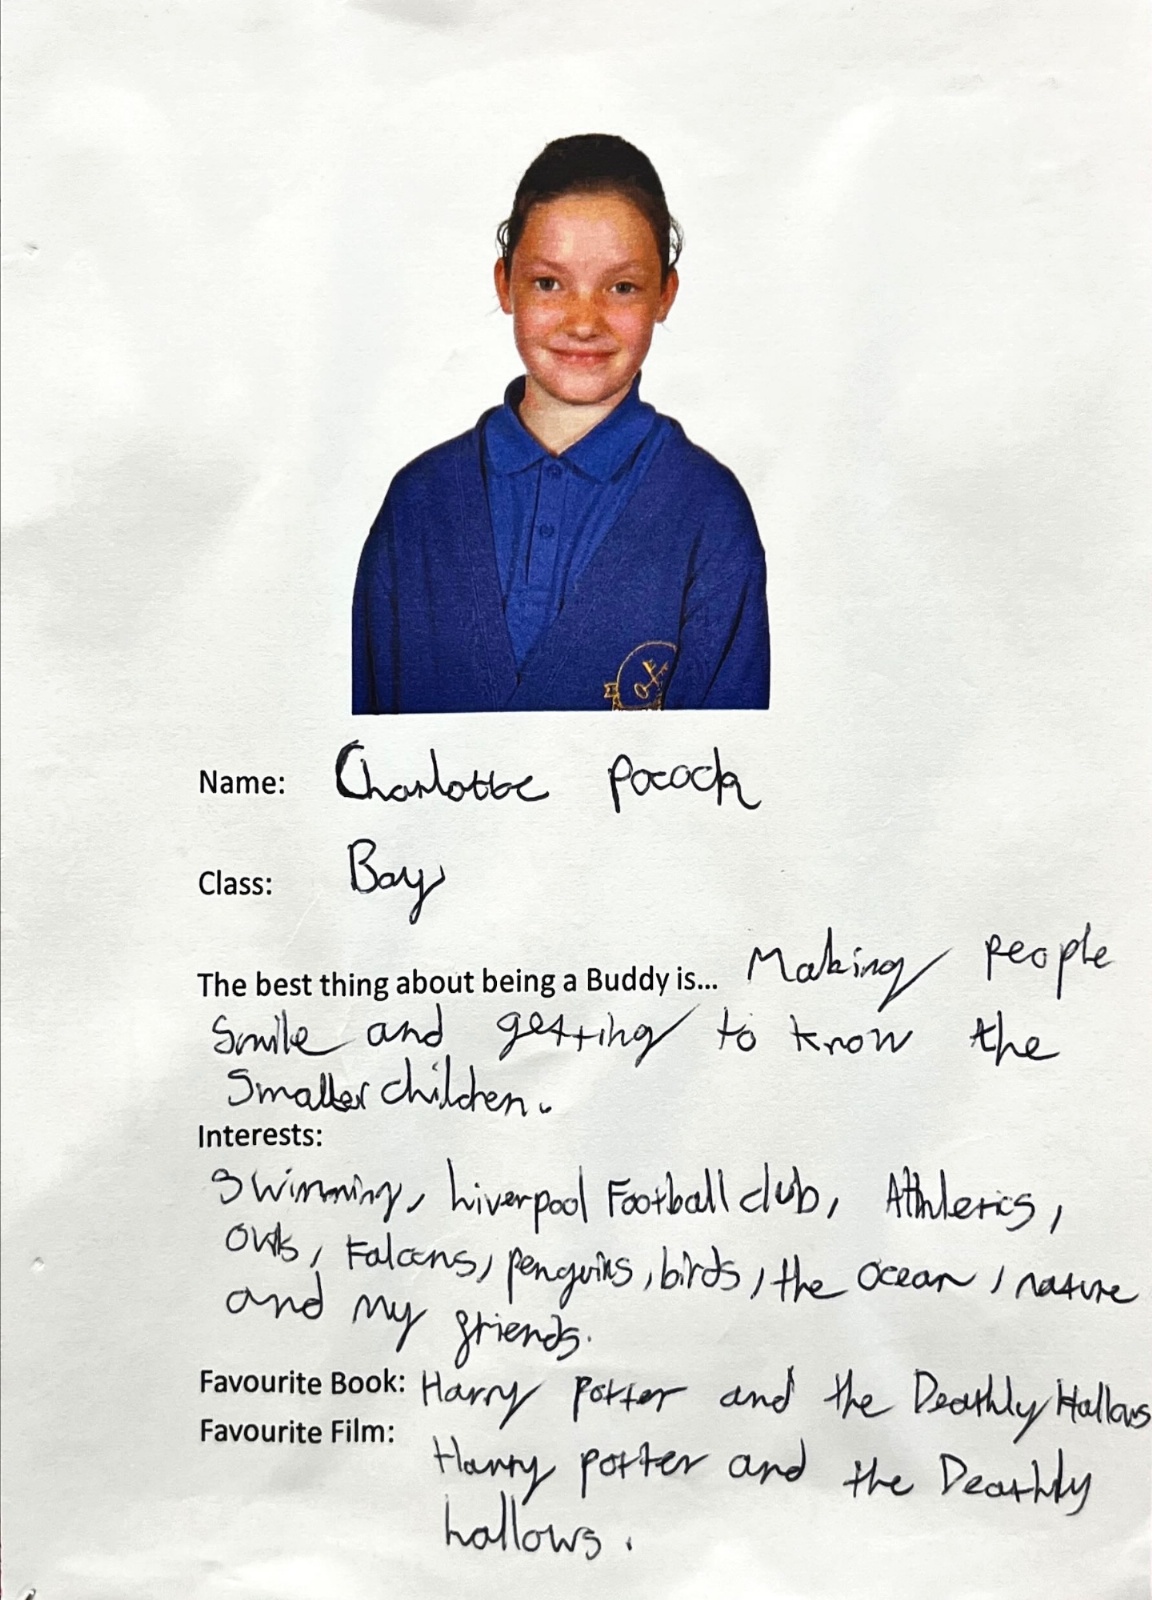 Name: Charlotte Pocock
Class: Bay
The best thing about being a Buddy is... Making people
Smile and getting to know the
Smaller children.
Interests:
Swimming, Liverpool Football club, Athletics,
Owls, Falcons, penguins, birds, the ocean, nature
and my friends.
Favourite Book: Harry Potter and the Deathly Hallows
Favourite Film: Harry potter and the Deathly
hallows.